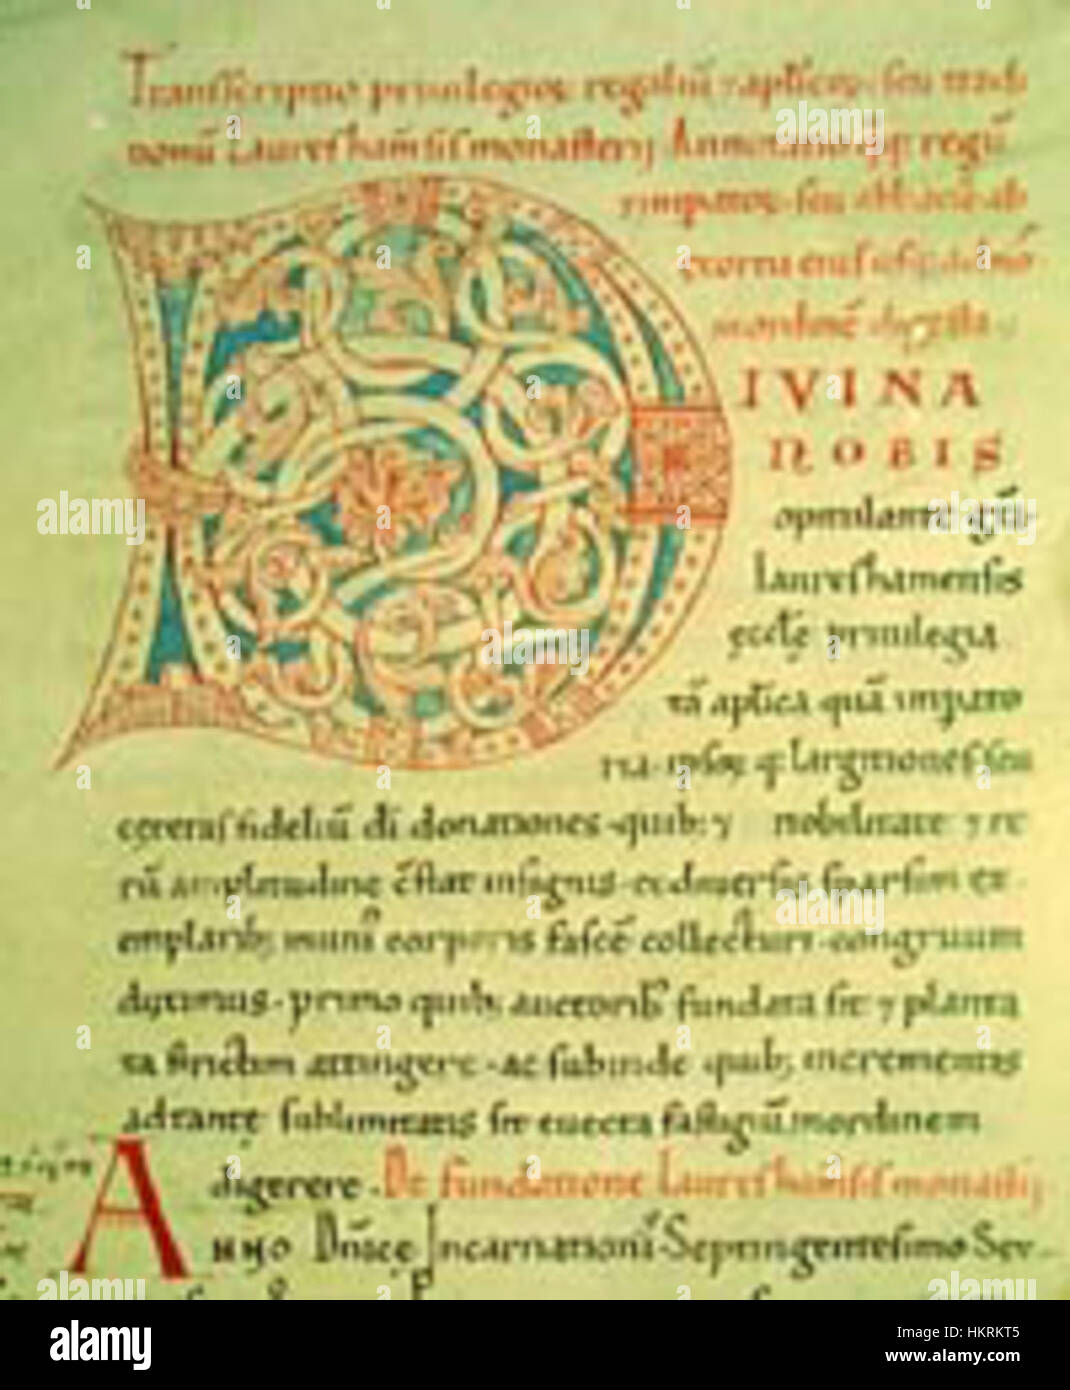 Transscriptio priuilegioꝝ regaliū ⁊ aplicoꝝ seu tradi
tionū Laureshamsis monasterij Annotatio qꝗ regū
imꝑatoꝝ seu abbatū ab
in ordinē digesta
IVINA
NOBIS
opitulante gr̄a
laureshamensis
eccle priuilegia
tā aplica quā imꝑato
ria largitiones seu
ceteras fideliū di donationes quib; ⁊ nobilitate ⁊ re
rū amplitudine c̄stat insignis ex diuersis sparsim ex
emplarib; in uniꝰ corporis fascē collecturi congruum
duximus primo quib; auctorib; fundata sit ⁊ planta
ta strictim attingere ac subinde quib; incrementis
ad tante sublimitatis sit euecta fastigiū in ordinem
digerere. De fundatione Laureshamsis monastij
ANNO Dn̄ice Incarnationis Septingentesimo Sex
alamy
HKRKT5
www.alamy.com